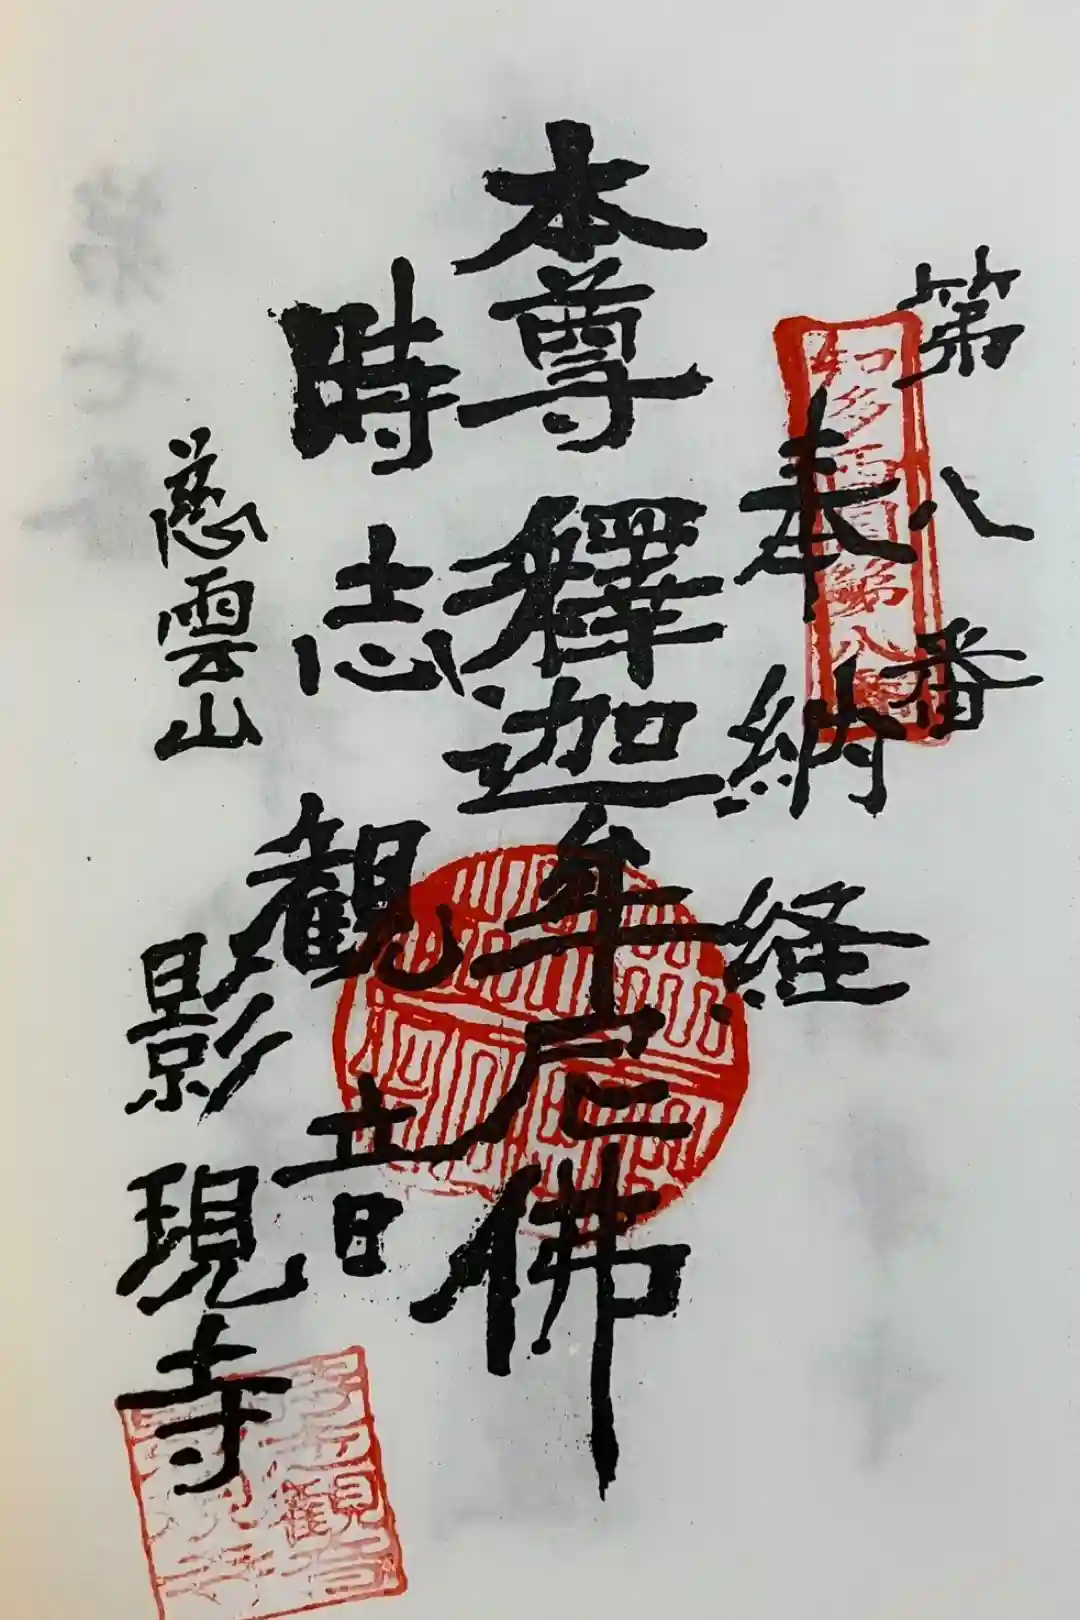 第八番
奉納経
本尊釋迦牟尼佛
時志觀音
慈雲山
影現寺
知多西國第八番